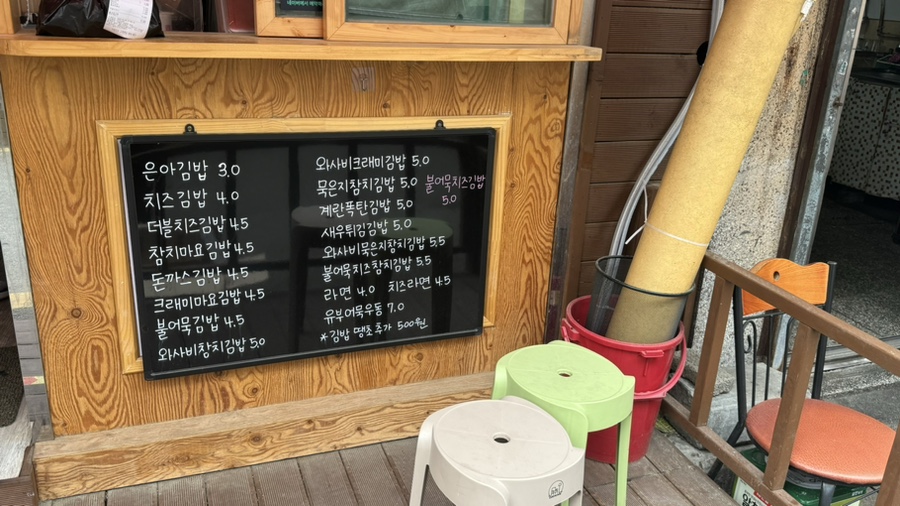 은아김밥 3.0
치즈김밥 4.0
더블치즈김밥 4.5
참치마요김밥 4.5
돈까스김밥 4.5
크래미마요김밥 4.5
불어묵김밥 4.5
와사비참치김밥 5.0
와사비크래미김밥 5.0
묵은지참치김밥 5.0
불어묵치즈김밥
5.0
계란폭탄김밥 5.0
새우튀김김밥 5.0
와사비묵은지참치김밥 5.5
불어묵치즈참치김밥 5.5
라면 4.0 치즈라면 4.5
유부어묵우동 7.0
*김밥 땡초추가 500원